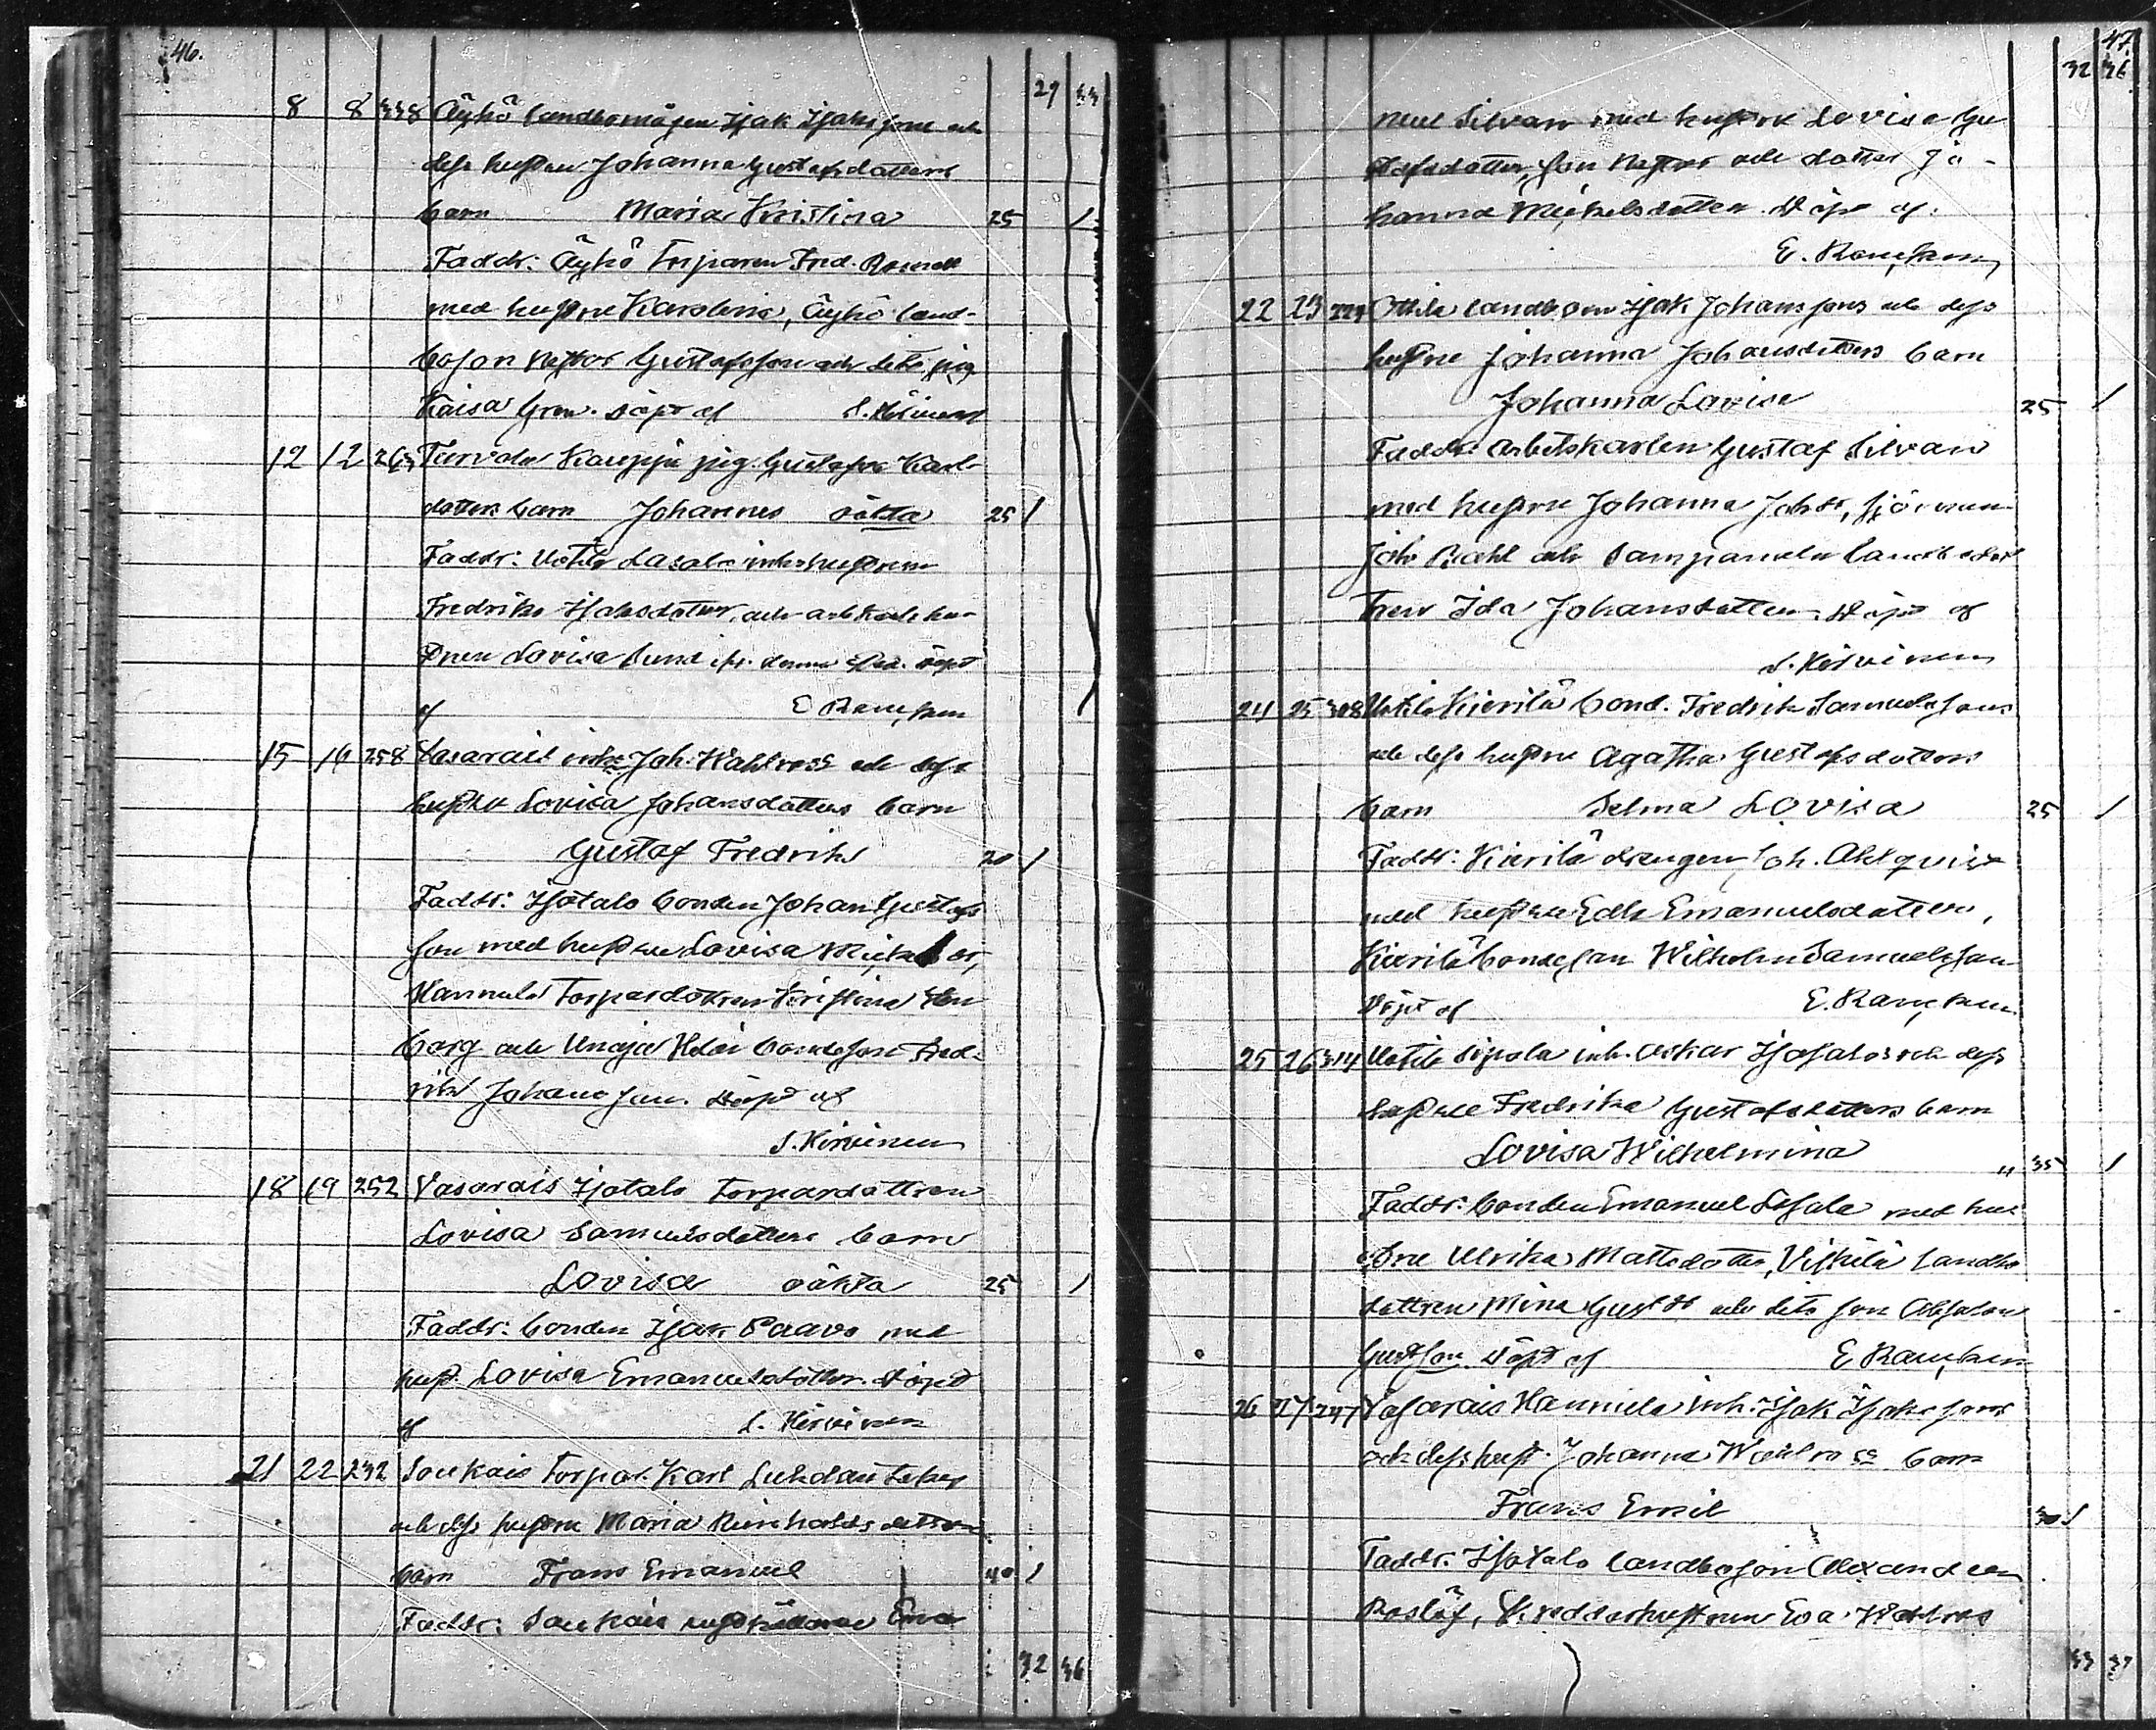 46.
29 33
8 8 338 Äyhö landbomågen Isak Isaksons och
dess hustru Johanna Gustafsdotters
barn Maria Kristina 25 /
Faddr: Äyhö Torparen Fred.
med hustru Karolina, Äyhö land-
boson Nestor Gustafsson och dito pig.
Kaisa Grön. döpt af S. Hirvinen
12 12 263 Kauppi pig. Gustafva Karls-
dotters barn Johannes oäkta 25 /
Faddr: Uotila Lasala inhs hustrun
Fredrika Isaksdotter, och arbtkarls hu-
strun Lovisa Sund ifr. denna döpt
af E Rancken
15 16 258 Vasarais inhs Joh. Wahlross och dess
hustru Lovisa Johansdotters barn
Gustaf Fredrik 20 /
Faddr: Isotalo bonden Johan Gustafs
son med hustru Lovisa Mickelsdr,
Hannula Torpardottren Kristina
berg och Unaja Heloi bondeson Fred-
rik Johansson. döpt af
S. Hirvinen
18 19 252 Vasarais Isotalo Torpardottren
Lovisa Samuelsdotters barn
Lovisa oäkta 25 /
Faddr: bonden Isak Paavo med
hust. Lovisa Emanuelsdotter. döpt
af S. Hirvinen
21 22 232 Soukais Torpar. Karl
och dess hustru Maria Reinholdsdotters
barn Frans Emanuel 40 /
Faddr: Soukais
32 36
47.
32 36
med hustru Lovisa Gu
stafsdotter, son Nestor och dotter Jo-
hanna Mickelsdotter. Döpt af.
E. Rancken
22 23 Ottila landbon Isak Johanssons och dess
hustru Johanna Johansdotters barn
Johanna Lovisa 25 /
Faddr: arbetskarlen Gustaf Silvan
med hustru Johanna Johdr, sjöman
Joh. och Sampanula landbodot
tren Ida Johansdotter. Döpt af
S. Hirvinen
24 25 308 Uotila Kierilä bond. Fredrik Samuelssons
och dess hustru Agatha Gustafsdotters
barn Selma Lovisa 25 /
Faddr: Kierilä drengen Joh. Ahlqvist
med hustru Edla Emanuelsdotter,
Kierilä bondeson Wilhelm Samuelsson
Döpt af E. Rancken
25 26 314 Uotila Sipola inh. Oskar Isosalos och dess
hustru Fredrika Gustafsdotters barn
Lovisa Wilhelmina " 35 /
Faddr: bonden Emanuel med hu
stru Ulrika Mattsdotter, landbo
dottren Mina Gustdr och dito son Absalon
Gustson. Döpt af E Rancken
26 27 247 Vasarais Hannula inh. Isak Isakssons
och dess hust. Johanna Wahlross barn
Frans Emil 30 /
Faddr. Isotalo landboson Alexander
Roslöf, Skreddarhustrun Eva Wahlross
33 37